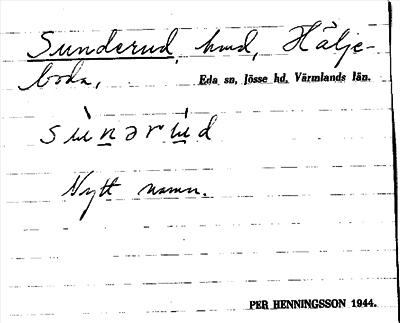 Sunderud, hmd, Hälje-
boda,
Eda sn, Jösse hd. Värmlands län.
sùnərúd
Nytt namn.
PER HENNINGSSON 1944.